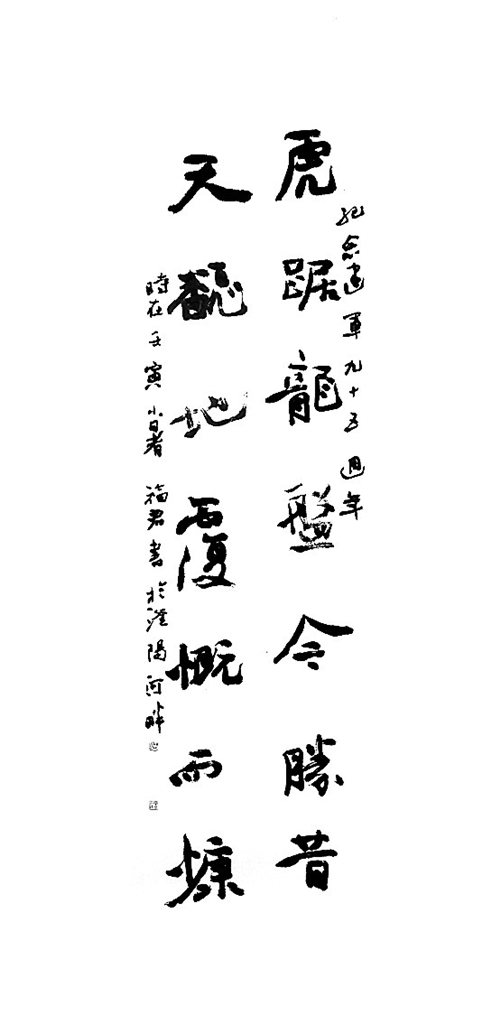 紀念建軍九十五週年
虎踞龍盤今勝昔
天翻地覆慨而慷
時在壬寅小暑 福君書於淮陽河畔